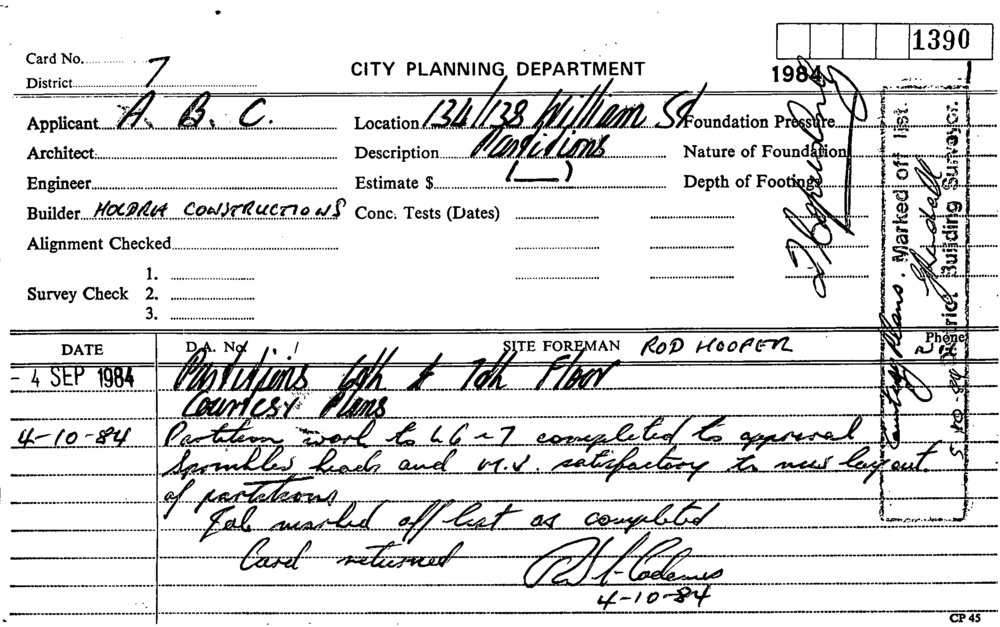 1390
1984
Card No.
7
District
CITY PLANNING DEPARTMENT
Applicant A. B. C.
Location 134/138 William St
Foundation Pressure
Architect
Description Partitions
Nature of Foundation
Engineer
Estimate $ (—)
Depth of Footings
Builder HOLDRIA CONSTRUCTIONS
Conc. Tests (Dates)
Alignment Checked
Survey Check
1.
2.
3.
Courtesy Plans. Marked off list.
District Building Surveyor.
DATE
D.A. No / /
SITE FOREMAN ROD HOOPER
Phone
- 4 SEP 1984
Partitions 6th & 7th Floor
Courtesy Plans
4-10-84
Partition work to L6-7 completed to approval
Sprinkler heads and M.V. satisfactory to new layout
of partitions
Job marked off list as completed
Card returned
4-10-84
CP 45